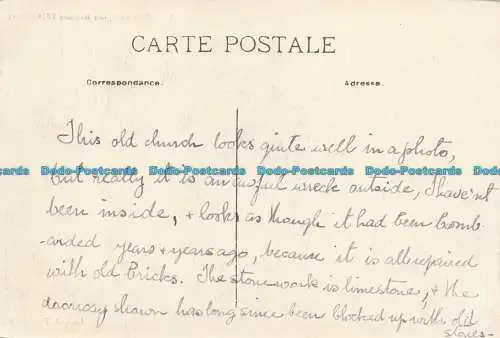 CARTE POSTALE
Correspondance. Adresse.
This old church looks quite well in a photo,
but really it is an awful wreck outside, I have'nt
Dodo-Postcards Dodo-Postcards Dodo-Postcards Dodo-Postcards
been inside, + looks as though it had been bomb-
-arded years + years ago, because it is all repaired
with old bricks. The stonework is limestone, + the
doorway shown has long since been blocked up with old
stones -